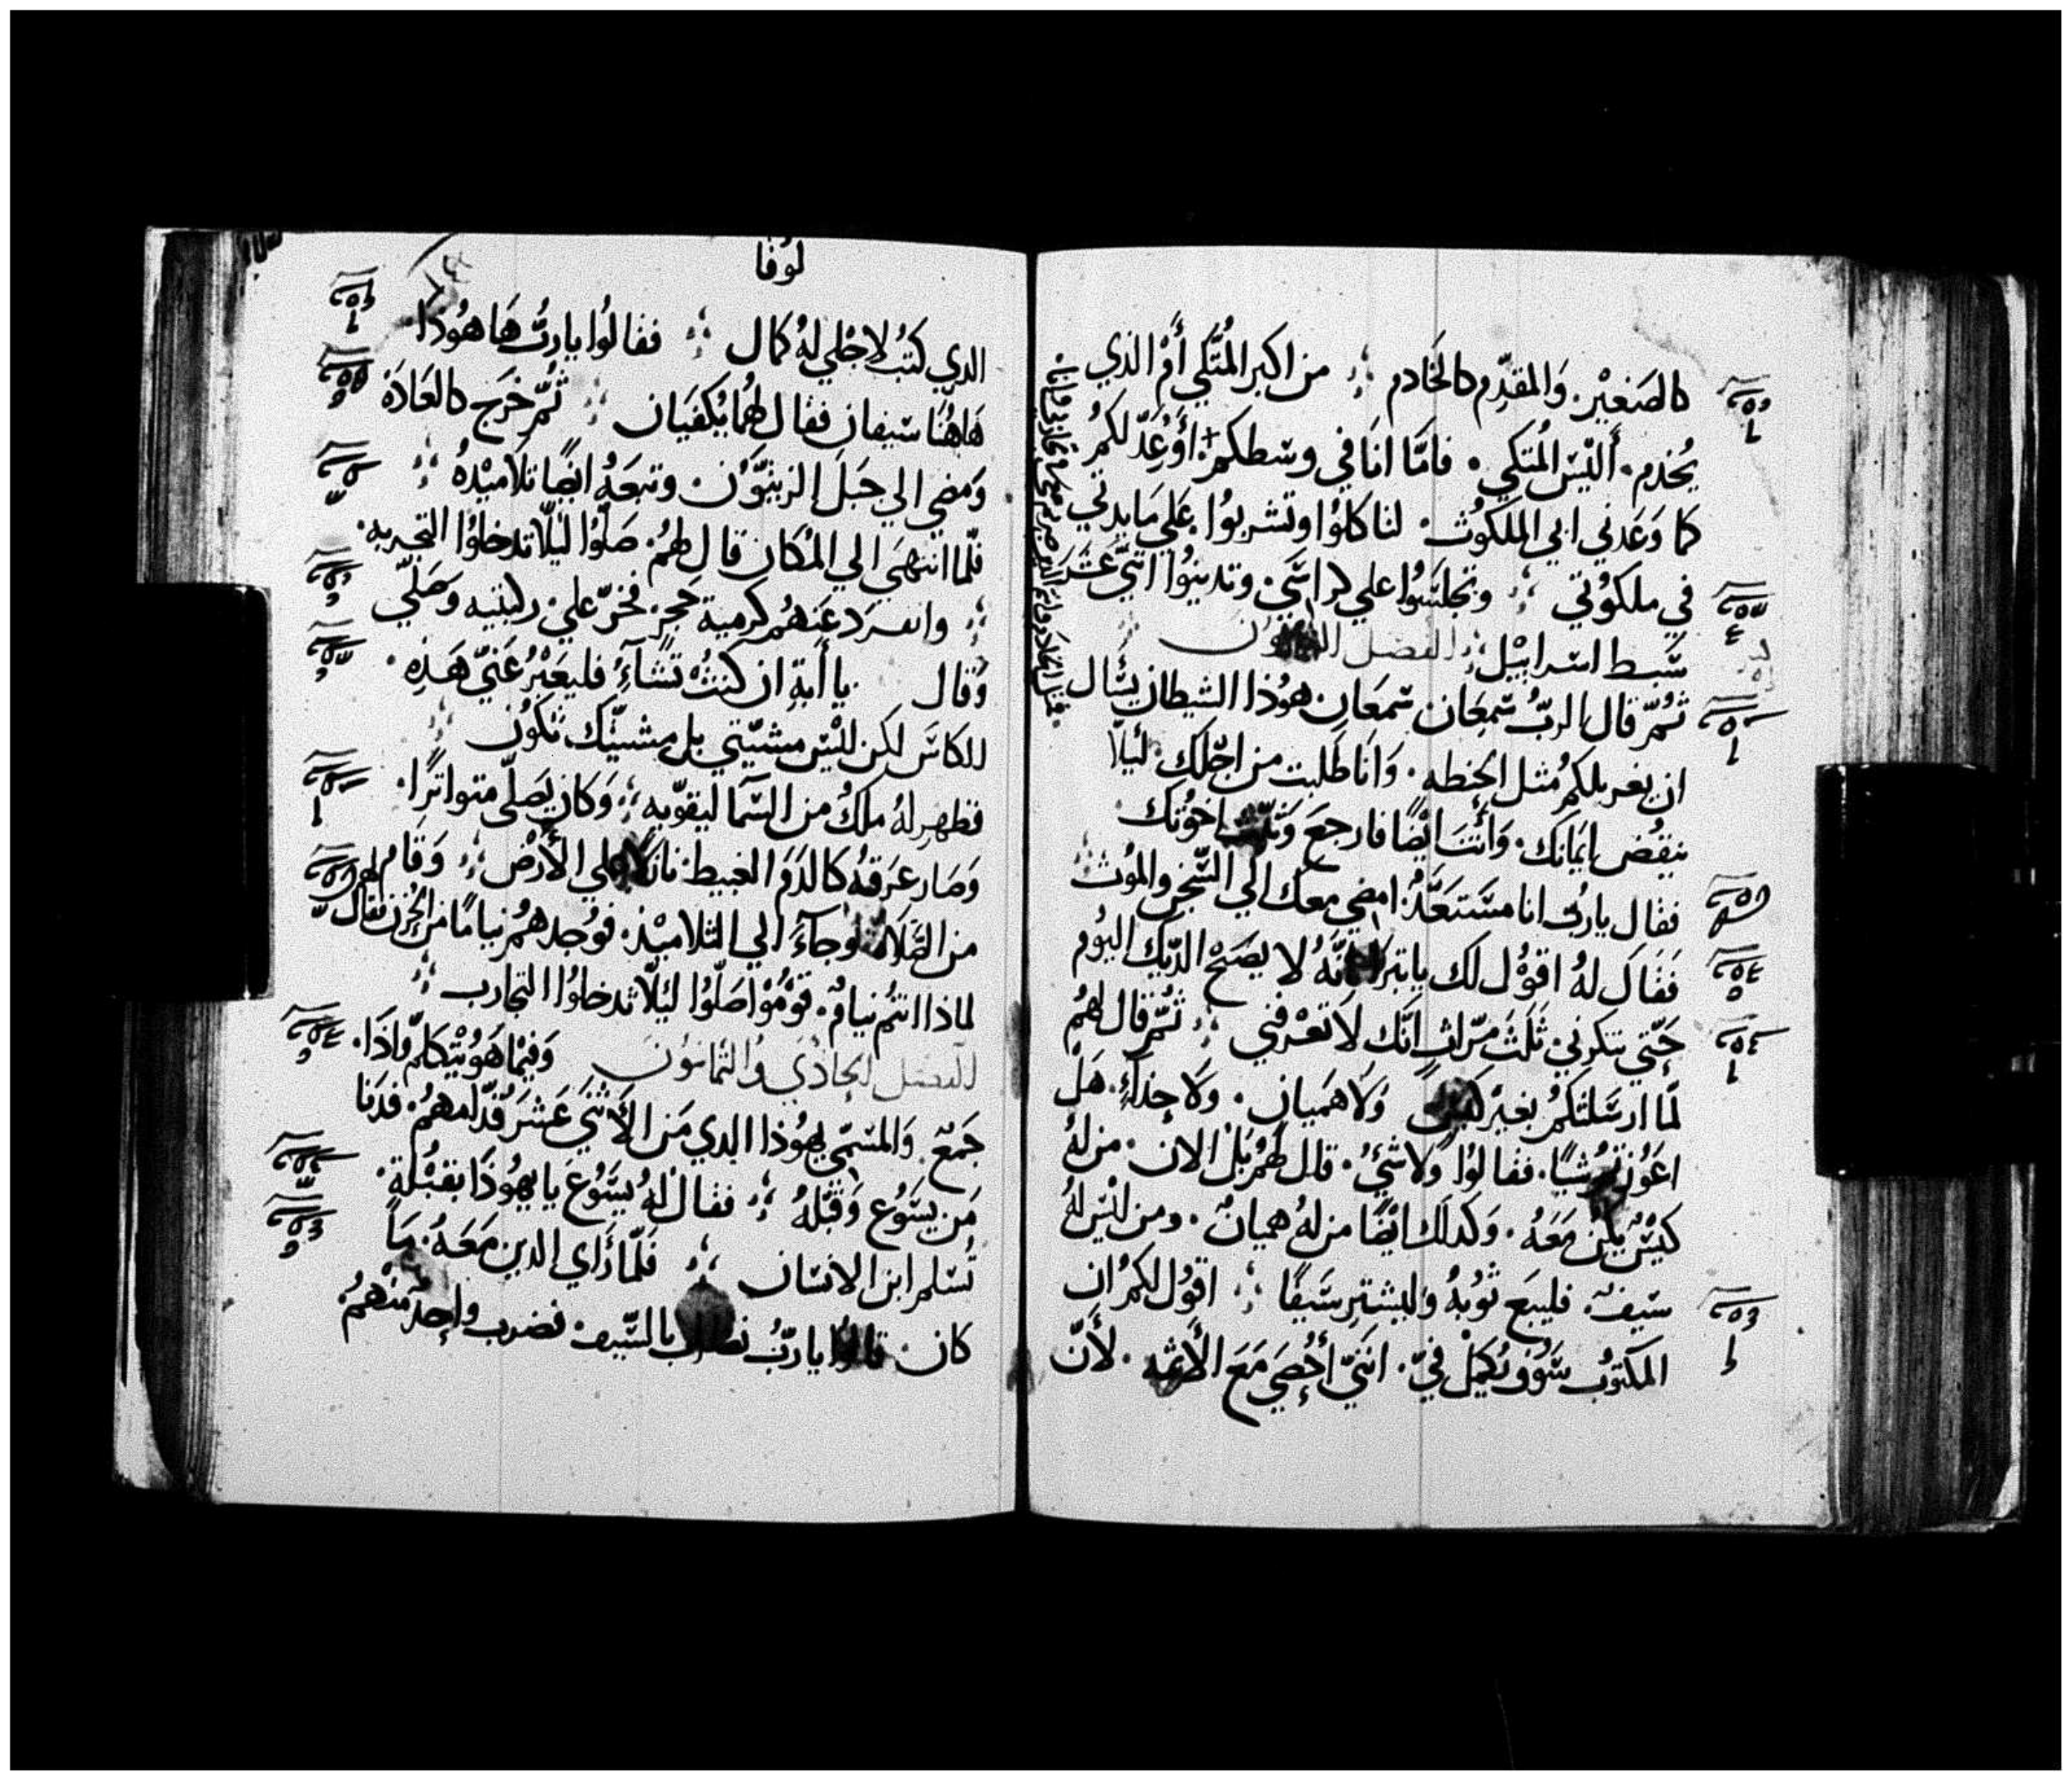 كالصَغيْر. وَالمقدِّم كالخَادم ؞ من اكبر المُتَّكي أَمْ الذي
يُخدم. أَليْسَ المُتكي. فامَّا انَا في وسَطكم + أَوَعِدّ لكمُ
كما وَعَدني ابي الملكوُت. لتاكلوُا وتشربوُا عَلي مَايدتي
في ملكوُتي ؞ وتجلسَوُا علي كراسَي. وتدينوُا اثني عَشَر
سَبط اسَراييْل ؞ الفصل الثمانون
ثمُّ قال الربُّ سَمعَان سَمعَان هوُذا الشيطان يسَال
ان يغربلكمُ مثل الحنطه. وَانا طَلبت من اجْلك ليلاَّ
ينقُض ايمَانك. وَأنتَ ايْضًا فارجعَ وَثبّت اخوُتك
فقال ياربُّ انا مسَتعَدٌّ امضي معك الي السَّجن والموُت
فَقال لهُ اقوُل لك يابترا انَّهُ لا يصَحْ الدّيك اليوُم
حَتّي تنكرني ثَلثَ مرّات انَّك لاَ تعْرفني ؞ ثمُّ قال لهمُ
لمّا ارسَلتكمُ بغيرْ كيسَ وَلاَ هَميان. وَلا حِذاءٍ. هَل
اعَوُزتمُ شيًا. فقالوُا وَلاَ شَيْ. قال لهمُ بَلْ الان. من لهُ
كيسٌ يكن مَعَهُ. وَكذلك ايْضًا من لهُ هميانٌ. ومن ليْسَ لهُ
سَيفٌ. فليبَع ثوُبهُ وَليشتر سَيفًا ؞ اقوُل لكمُ ان
المكتوُب سَوُف يُكملْ فيّ. انني أُحْصَي مَعَ الأثمه. لأَنَّ
لوُقا
الذي كتبُ لاجْلي لهُ كمال ؞ فقالوُا ياربُّ هَا هوُذا
هَاهُنا سَيفان فقال لهُما يكفيَان ؞ ثمُّ خَرَج كالعَادَة
وَمضي الي جَبَل الزيتوُن. وتبعَهُ ايضًا تلاميْذهُ ؞
فلّما انتهيَ الي المكان قال لهمُ. صَلّوُا ليْلاّ تدخلوُا التجربه.
؞ وانفرَد عَنهُم كرمية حَجر. فخرّ علي ركبتيه وَصَلّي
وَقال يا أَبةِ ان كنتُ تشَاءُ فليعَبْر عَنّي هَذِه
الكاسَ لكن ليْسَ مشيّتي بل مشيّتك تكوُن
فظهر لهُ ملكٌ من السَما ليقوّيه ؞ وَكان يصَلّي متواترًا.
وَصَار عَرَقهُ كالدَم العَبيط نازلاً علي الأرض ؞ وَقام
من الصَلاة وجاءَ الي التلاميْذ. فوُجدهمُ نيامًا من الحُزن فقال لهم
لماذا انتمُ نيامٌ. قوْموُا صَلّوُا ليُلاَّ تدخلوُا التجارب ؞
الفصل الحادي والثمانون وَفيْما هوُ يتكلم وَاذَا.
جَمعٌ وَالمسَمّي يهوُذا الذي من الاثنيَ عَشَر قدّامهمُ. فدَنا
من يسَوُع وَقبّلهُ ؞ فقال لهُ يسَوُعَ يا يهوُذا بقبْلة.
تُسَلم ابن الانسَان ؞ فَلمّا رَاي الذين مَعَهُ. مَا
كان. قالوُا ياربُّ نضرب بالسَّيف. فضرب واحِدٌ منهمُ.